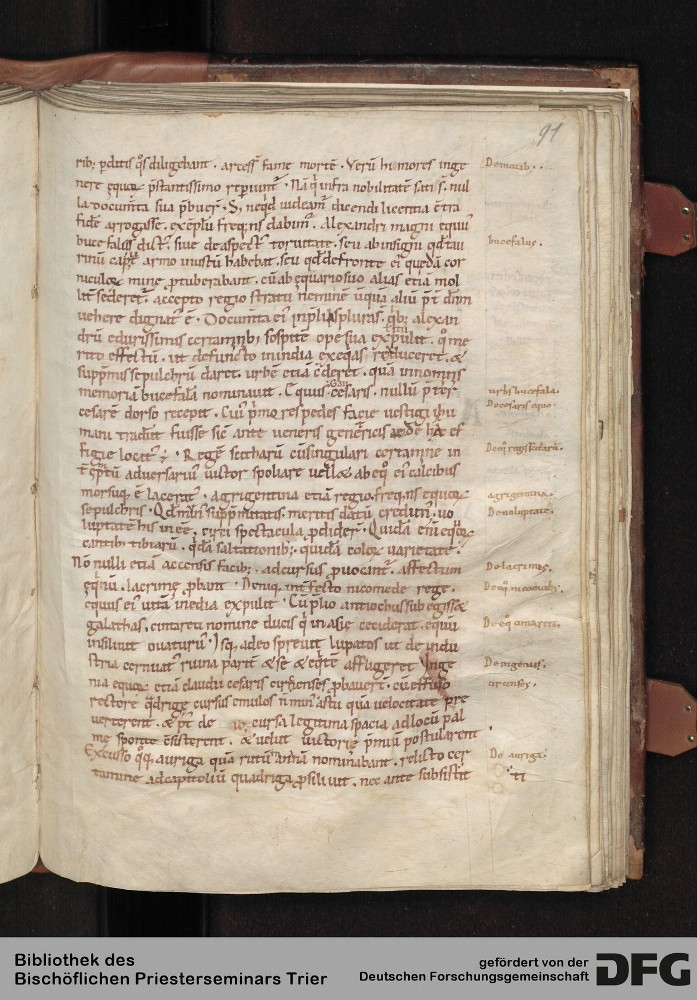 91
rib; pditis q̊s diligebant · arcess̄ fame morte · Verū hi mores inge
nere equoꝝ p̄stantissimo repiunt̄ · Nā q̄ infra nobilitatē sati s̄ · nul
la documta sua p̄buer̄ · S; neqd videam̄ dicendi licentia ext̄ra
fidē arrogasse · exeplū freqns dabim̄ · Alexandri magni equus
bucefalus dict̄ · sive de aspect̄ torvitate · seu ab insigni qd tau
rinū caput armo inustū habebat · seu qd de fronte ei quedā cor
niculoꝝ mine ptuberabant · cū ab equario suo alias etiā mol
lit̄ sederet̄ · accepto regio stratu neminē ūquā aliū p̄t dn̄m
vehere dignat̄ ē · Documta ei in pliis plura s̄ · qb; alexan
drū e durissimis certaminib; sospitē ope sua expulit · q̊ me
rito effectū · ut defuncto in india exeqas rex duceret · &
supp̄mis sepulchrū daret · urbē etiā c̄deret · quā in nominis
memoriā bucefalā nominavit · Equus Gaii cesaris · nullū p̄ter
cesarē dorso recepit · Cui p̄mores pedes facie vestigii hu
mani tradunt fuisse sic̄ ante veneris genetricis edē hac ef
figie locat̄ · Regē scitharū cū singulari certamine in
t̄ēptū adversariꝰ victor spoliare vell& ab eq̊ ei calcibus
morsuq; ē lacerat̄ · agrigentina etiā regio · freqns equoꝝ
sepulchris · Qd mun̄ supp̄mitatis · meritis datū credim̄ · vo
luptatē his inēē · circi spectacula pdider̄ · Quidā eni equoꝝ
cantib; tibiarū · qdā saltationib; · quidā coloꝝ varietate ·
Nō nulli etiā accensis facib; · ad cursus pvocant̄ · affectum
eqnū · lacrime pbant · Deniq; int̄fecto nicomede rege ·
equus ei vitā inedia expulit · Cū plio antiochus subegiss&
galathas · cintareti nomine ducis q̄ in acie ceciderat · equū
insiluit ovaturꝰ · Isq; adeo sprevit lupatos ut de indu
stria cernuat̄ ruina parit̄ & se & eqtē affligeret Inge
nia equoꝝ etiā claudii cesaris circenses pbaver̄ · cū effuso
rectore qdrige cursus emulos n̄ min̄ astu quā velocitate pre
verterent · & p̄t de cursa legitima spacia ad locū pal
mę sponte c̄sisterent · & velut victorię p̄miū postularent ·
Excusso q̊q; auriga quā rutūmannā nominabant · relicto cer
tamine ad capitoliū quadriga psiluit · nec ante subsistit
De morib; ·
bucefalus ·
urbs bucefala ·
De cesaris equo ·
De eq̊ regis scitharū ·
agrigentina ·
De voluptate ·
De lacrimis ·
De eq̊ nicomedis ·
De eq̊ cintareti ·
De ingeniis ·
circenses ·
De auriga ·
ti
Bibliothek des
Bischöflichen Priesterseminars Trier
gefördert von der
Deutschen Forschungsgemeinschaft
DFG